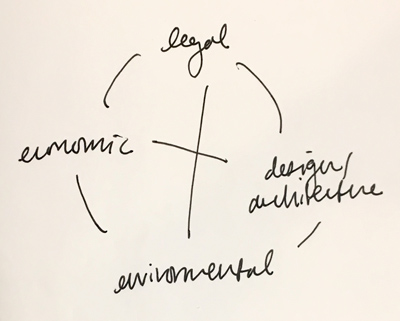 legal
economic
design/
architecture
environmental